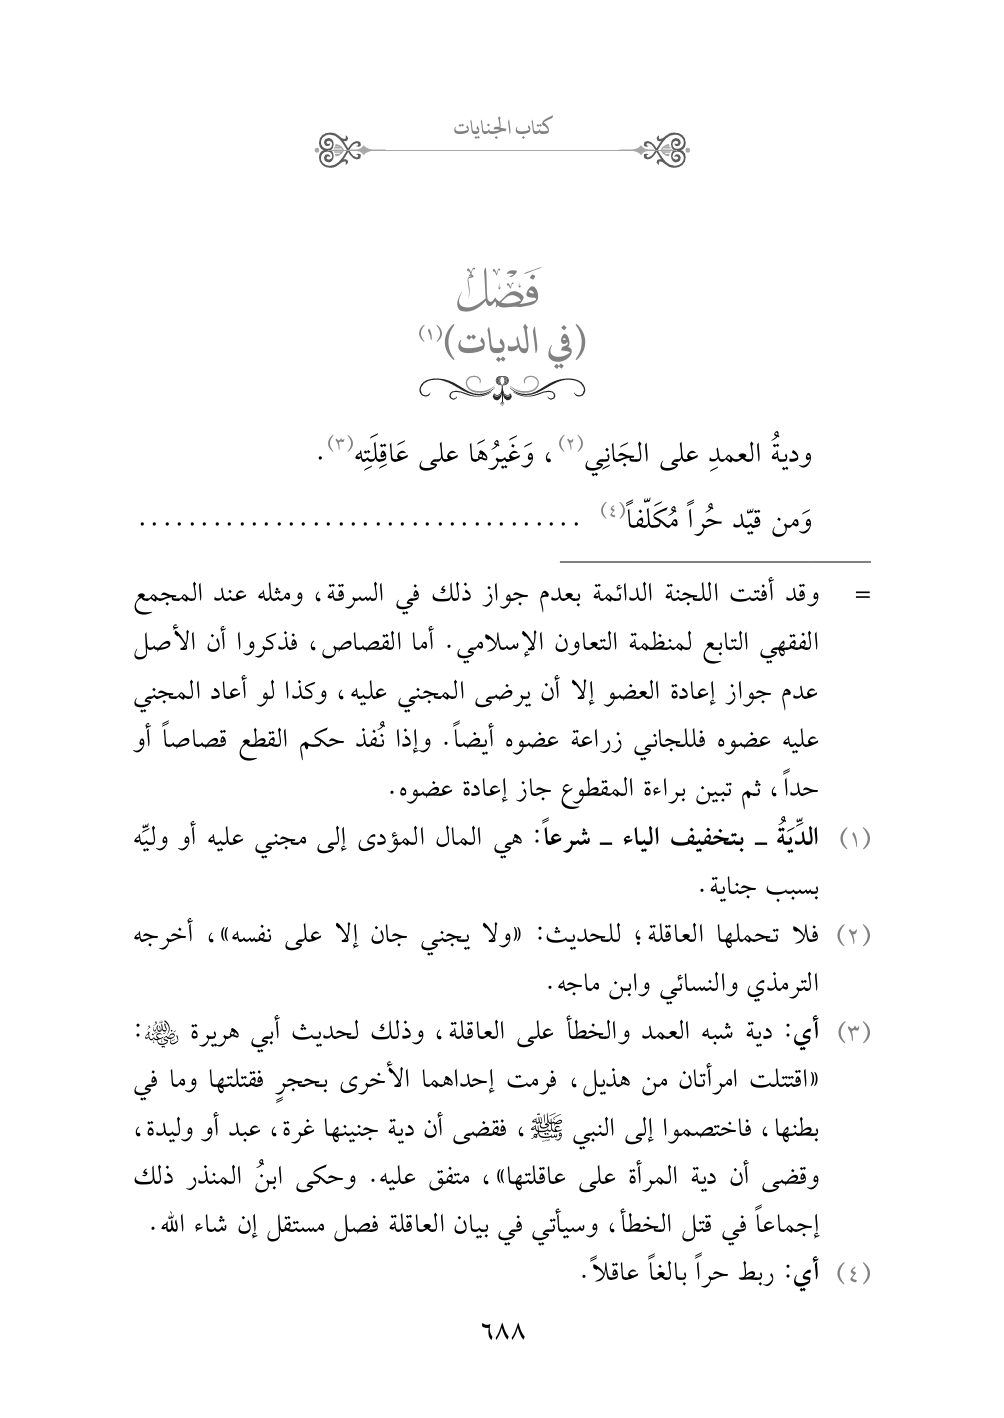 كتاب الجنايات
فَصْلٌ
(في الديات)(١)
وديةُ العمدِ على الجَانِي(٢)، وَغَيرُهَا على عَاقِلَتِه(٣).
وَمن قيّد حُراً مُكَلّفاً(٤) ....................................
= وقد أفتت اللجنة الدائمة بعدم جواز ذلك في السرقة، ومثله عند المجمع
الفقهي التابع لمنظمة التعاون الإسلامي. أما القصاص، فذكروا أن الأصل
عدم جواز إعادة العضو إلا أن يرضى المجني عليه، وكذا لو أعاد المجني
عليه عضوه فللجاني زراعة عضوه أيضاً. وإذا نُفذ حكم القطع قصاصاً أو
حداً، ثم تبين براءة المقطوع جاز إعادة عضوه.
(١) الدِّيَةُ ـ بتخفيف الياء ـ شرعاً: هي المال المؤدى إلى مجني عليه أو وليِّه
بسبب جناية.
(٢) فلا تحملها العاقلة؛ للحديث: «ولا يجني جان إلا على نفسه»، أخرجه
الترمذي والنسائي وابن ماجه.
(٣) أي: دية شبه العمد والخطأ على العاقلة، وذلك لحديث أبي هريرة رضي الله عنه:
«اقتتلت امرأتان من هذيل، فرمت إحداهما الأخرى بحجرٍ فقتلتها وما في
بطنها، فاختصموا إلى النبي ﷺ، فقضى أن دية جنينها غرة، عبد أو وليدة،
وقضى أن دية المرأة على عاقلتها»، متفق عليه. وحكى ابنُ المنذر ذلك
إجماعاً في قتل الخطأ، وسيأتي في بيان العاقلة فصل مستقل إن شاء الله.
(٤) أي: ربط حراً بالغاً عاقلاً.
٦٨٨